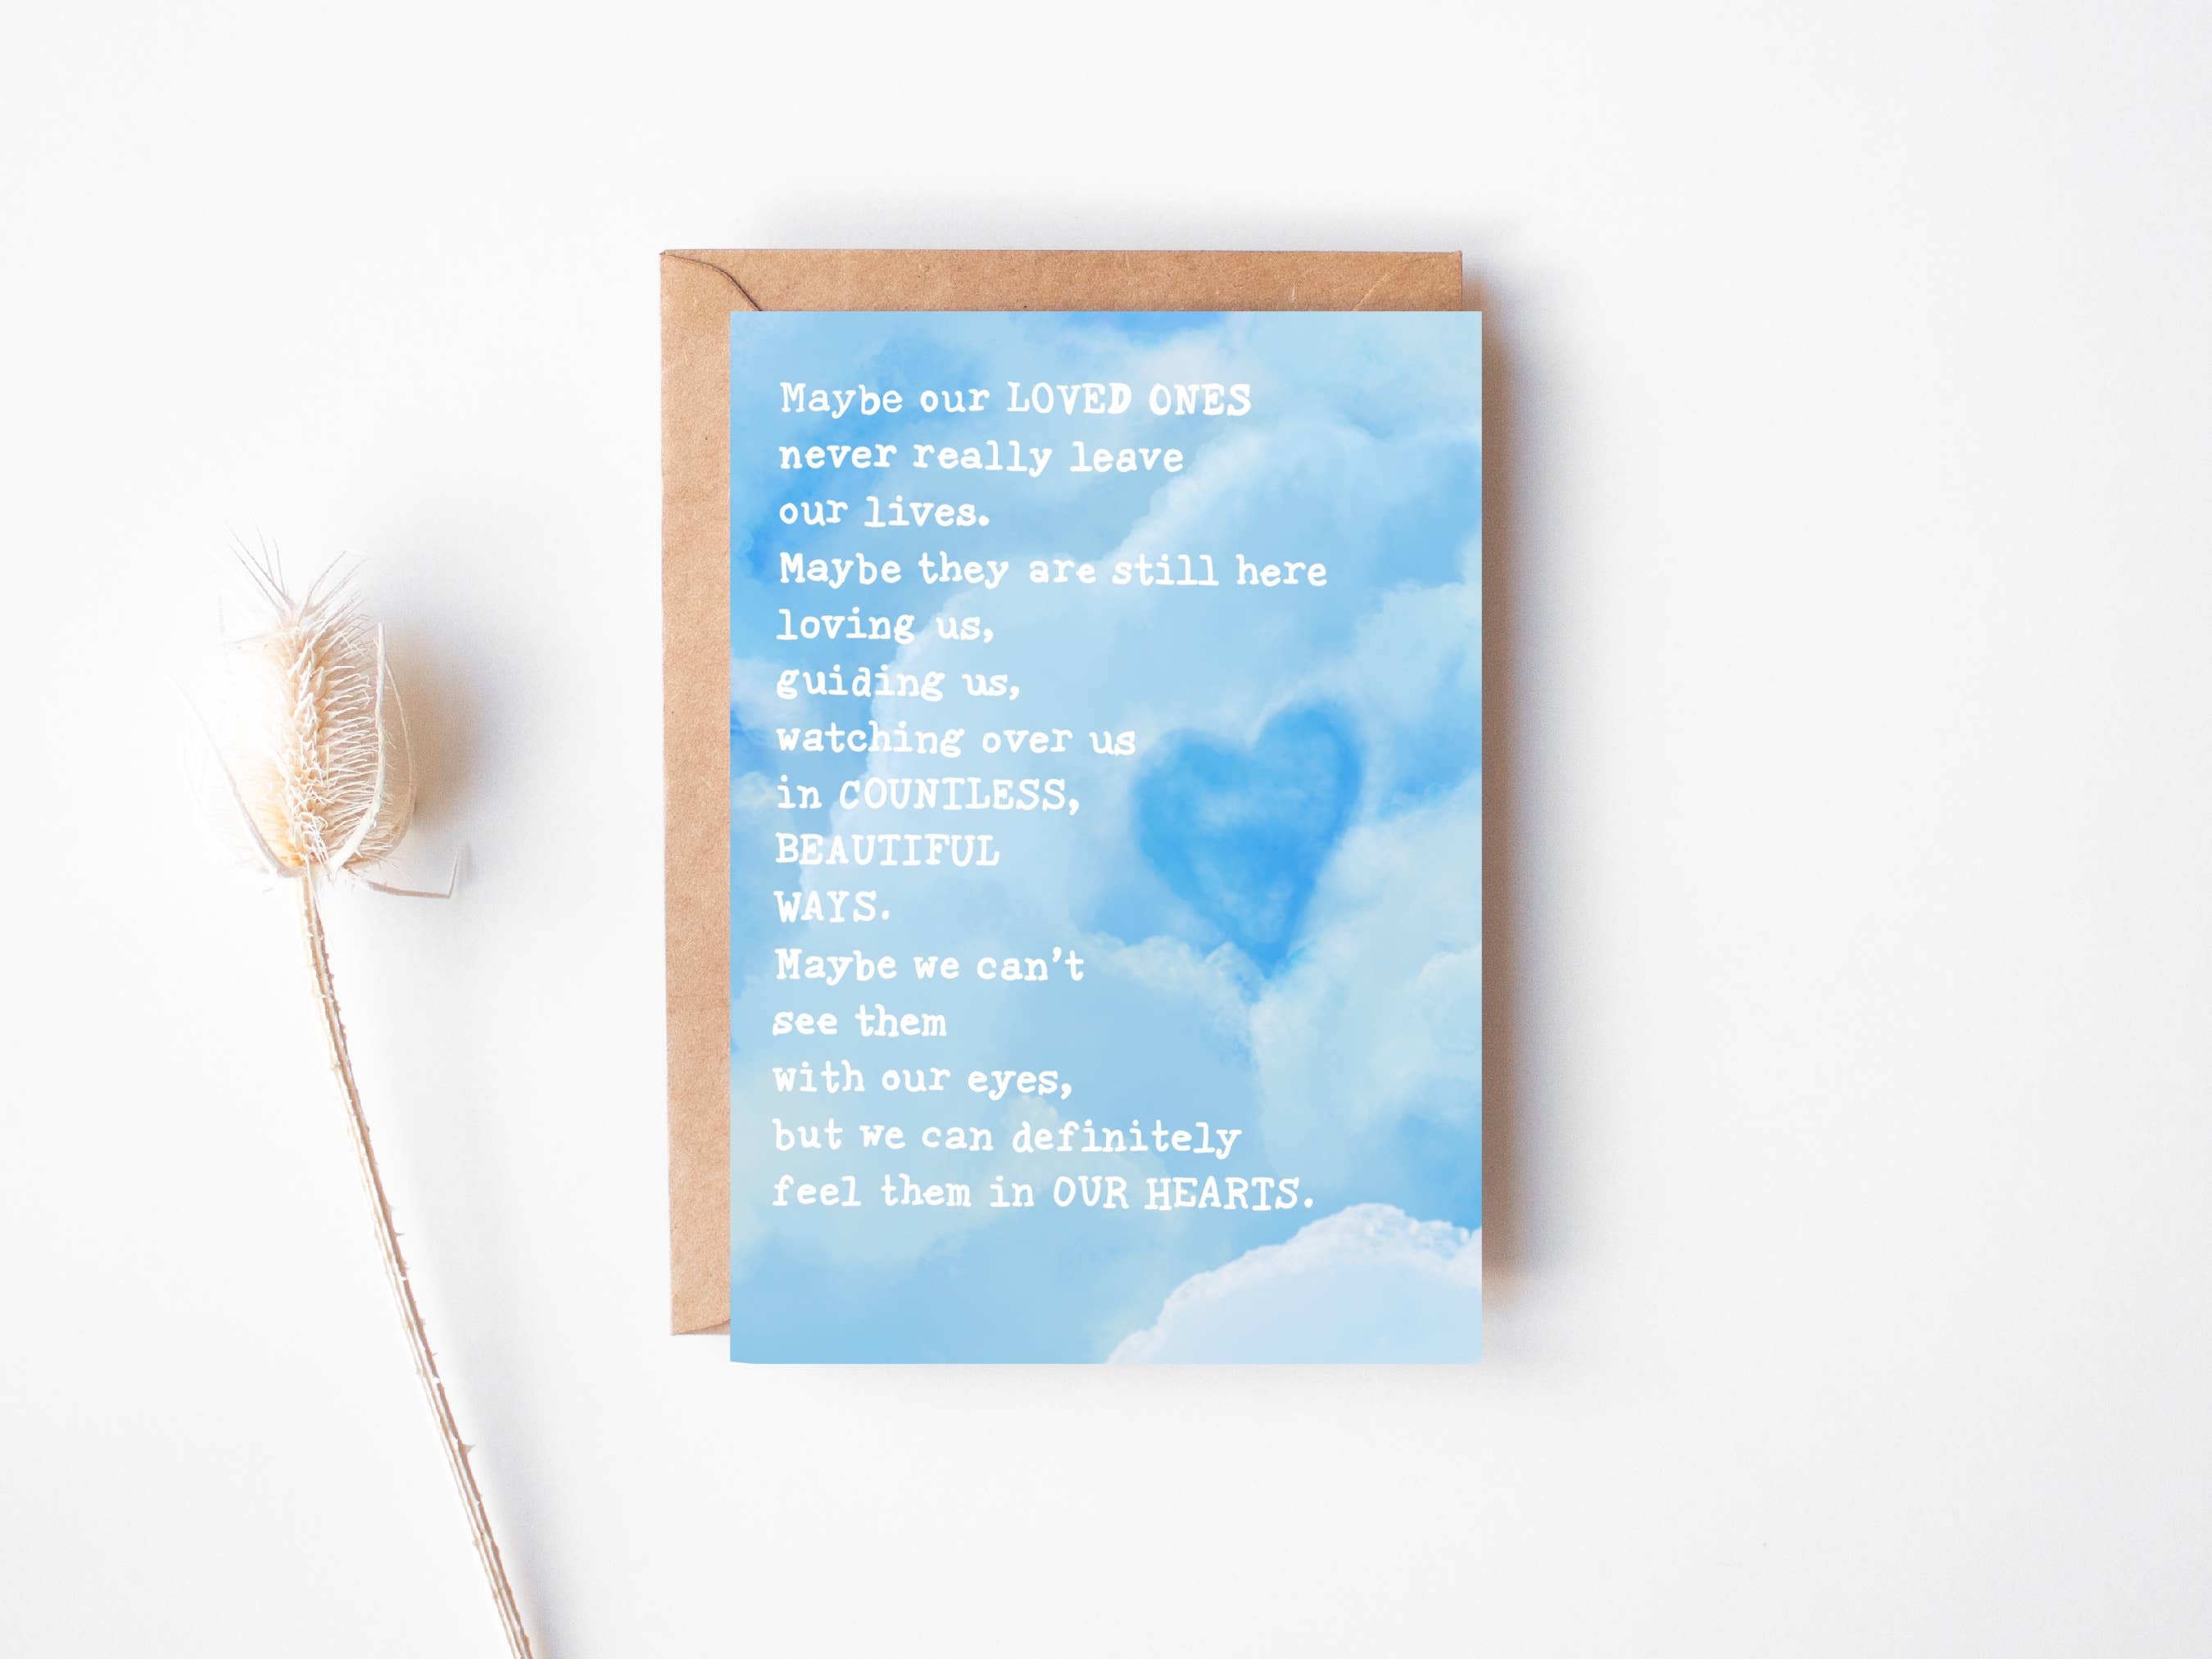 Maybe our LOVED ONES
never really leave
our lives.
Maybe they are still here
loving us,
guiding us,
watching over us
in COUNTLESS,
BEAUTIFUL
WAYS.
Maybe we can't
see them
with our eyes,
but we can definitely
feel them in OUR HEARTS.